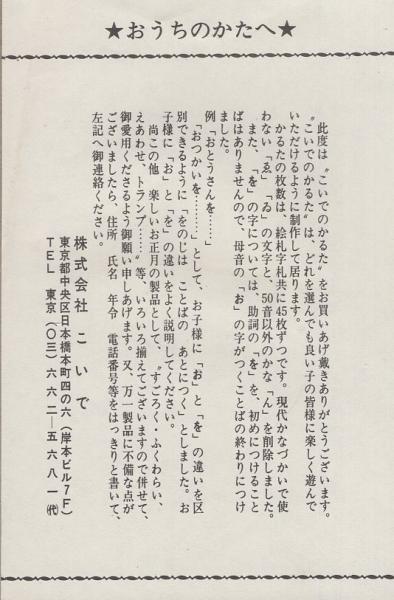 ★おうちのかたへ★
此度は〝こいでのかるた〟をお買いあげ戴きありがとうございます。
〝こいでのかるた〟は、どれを選んでも良い子の皆様に楽しく遊んで
いただけるように制作して居ります。
かるたの枚数は、絵札字札共に45枚ずつです。現代かなづかいで使
わない「ゑ」「ゐ」の文字と、50音以外のかな「ん」を削除しました。
また、「を」の字については、助詞の「を」を、初めにつけること
ばはありませんので、母音の「お」の字がつくことばの終わりにつけ
ました。
例「おとうさんを……」
「おつかいを………」として、お子様に「お」と「を」の違いを区
別できるように「をのじは ことばの あとにつく」としました。お
子様に「お」と「を」の違いをよく説明してください。
尚この他 楽しいお正月の製品として、〝すごろく・ふくわらい、
えあわせ、トランプ……〟等、いろいろ揃えてございますので併せて、
御愛用くださるよう御願い申しあげます。又、万一製品に不備な点が
ございましたら、住所 氏名 年令 電話番号等をはっきりと書いて、
左記へ御連絡ください。
株式会社 こいで
東京都中央区日本橋本町四の六(岸本ビル7F)
TEL 東京(〇三)六六二―五六八一(代)